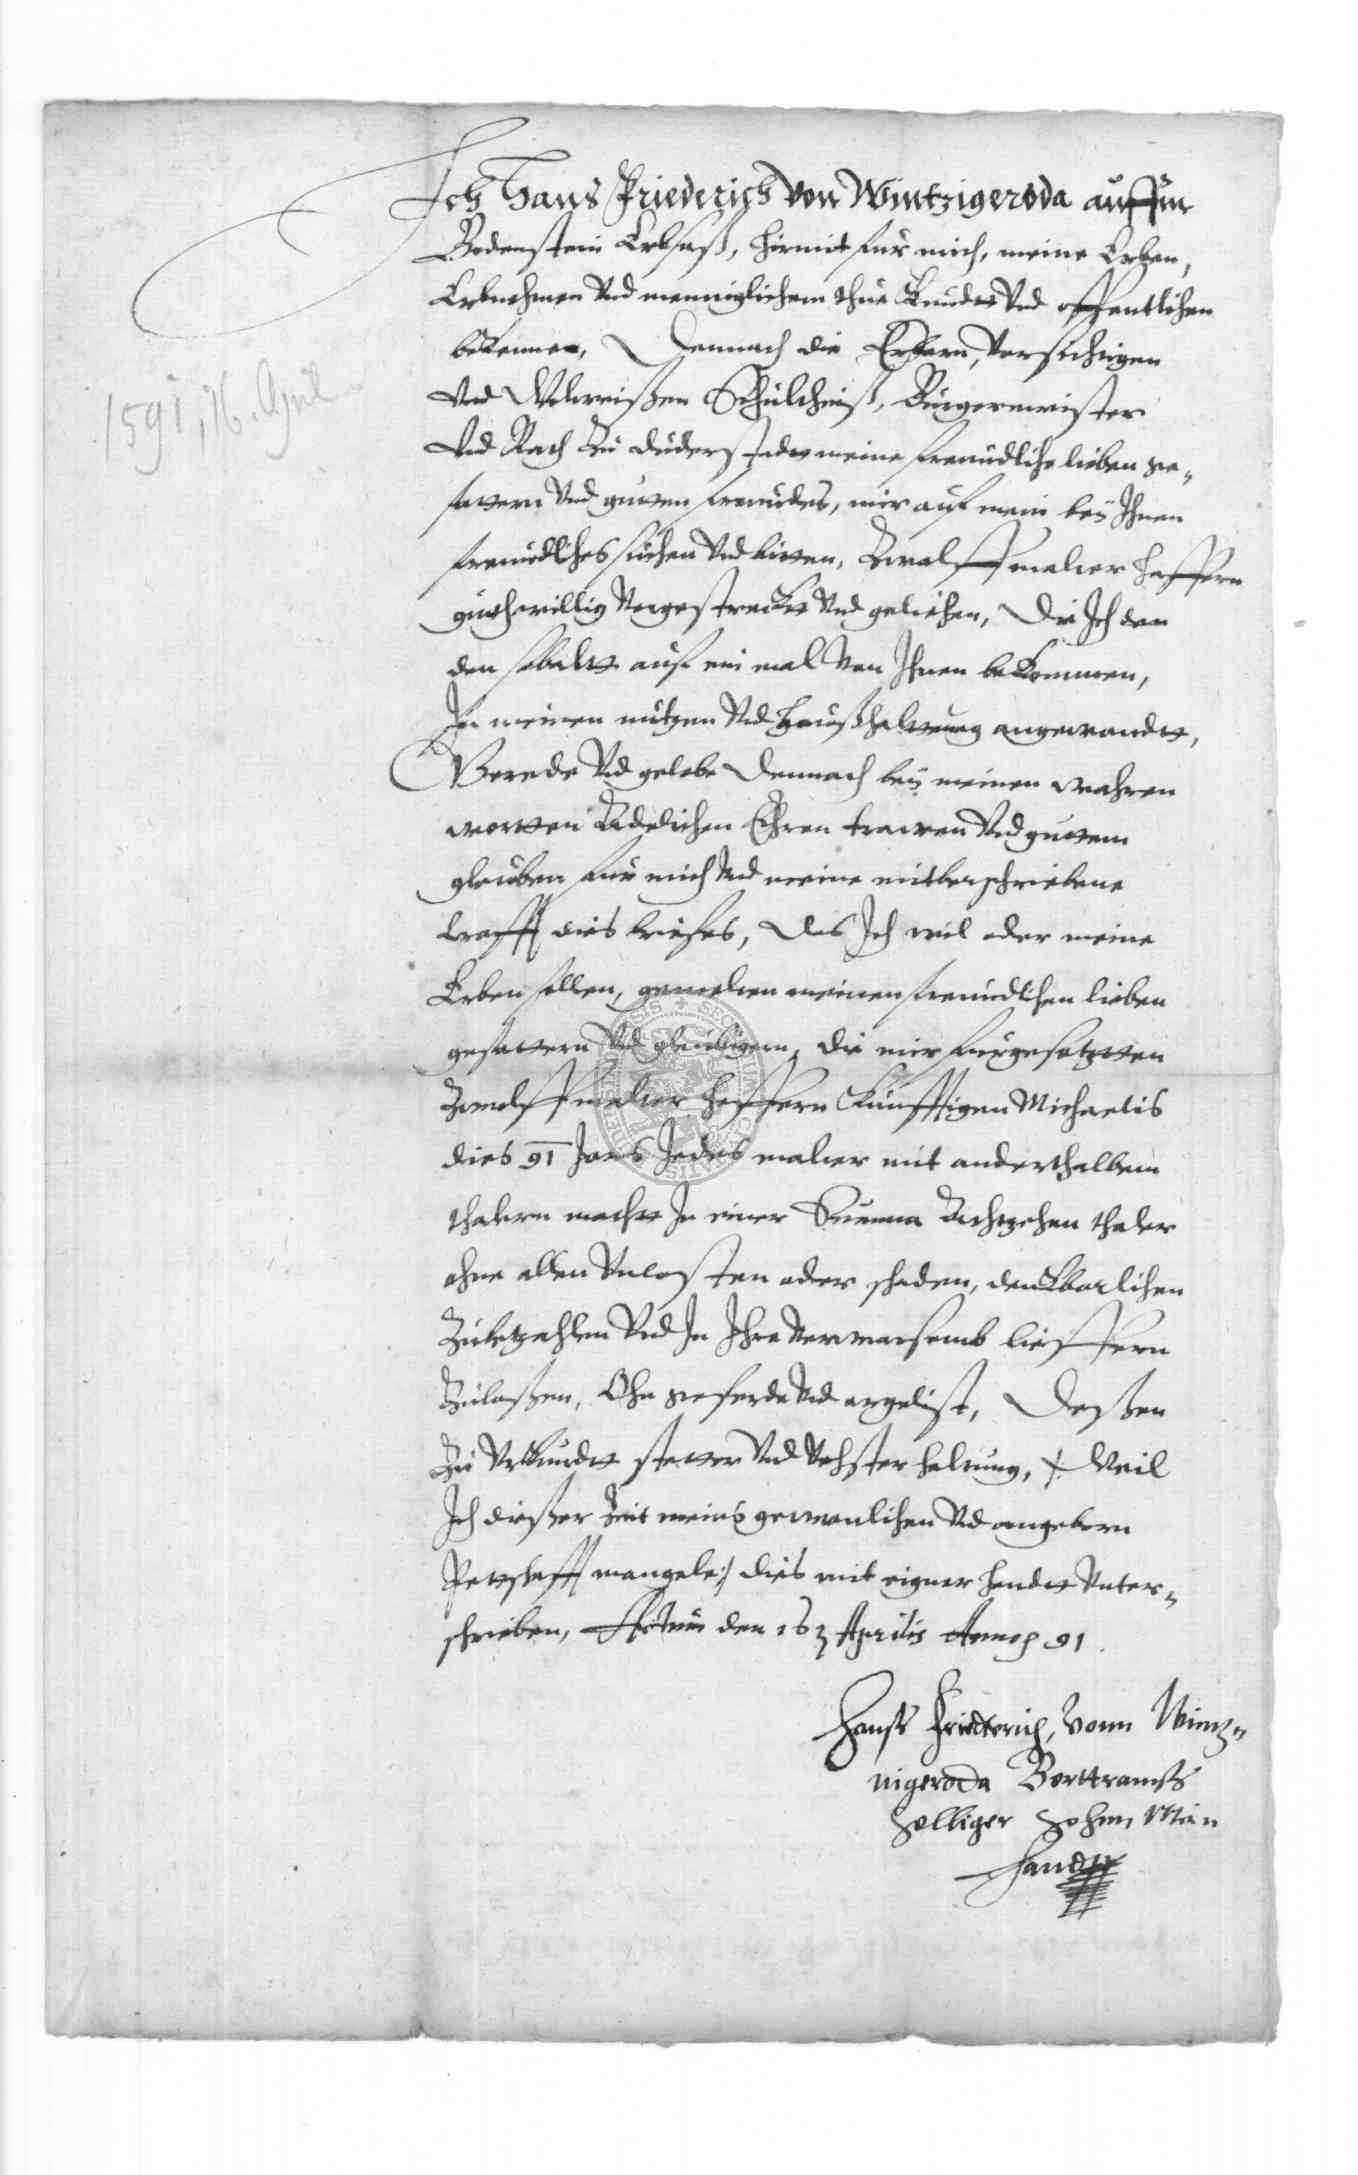 Ich Hans Friederich von Wintzigeroda auffm
Bodenstein Erbsaß, hirmit fur mich, meine Erben,
Erbnehmen Vnd menniglichem thue Kundt Vnd offentlichen
bekenne, Demnach die Erbarn, Vorsichtigen
Vnd Wolweißen Schultheiß, Burgermeister
Vnd Rath Zu Duderstadt meine freundliche lieben ge-
fattern Vnd gutten freundes, mir auf mein beÿ Ihnen
freundliches suchen Vnd bitten, Zwolff malter haffern
guthwillig Vorgestreckt Vnd geliehen, Die Ich den
den sobaltt auf ein mal Von Ihnen bekommen,
In meinen nutzen Vnd haußhalttung angewandtt,
Berede Vnd gelobe Demnach beÿ meinen wahren
wortten Adelichen Ehren trawen Vnd guttem
glauben fur mich Vnd meine mitbeschriebene
krafft dies briefes, Das Ich wil oder meine
Erben sollen, gemelten meinen freundlichen lieben
gefattern Vnd gleubigern, die mir furgesetztten
Zwolff malter haffern Kunfftigen Michaelis
dies 91 Jars Jedes malter mit anderthalbem
thalern machtt In einer Summa Achtzehen thaler
ohne allen Vnkosten oder schaden, danckbarlichen
Zubetzahlen Vnd In Ihre Verwarsamb lieffern
Zulaßen, Ohn geferde Vnd argelist, Deßen
Zu Vrkundtt stetter Vnd Vhester haltung, /: Weil
Ich dießer Zeit meins gewonlichen Vnd angeborn
Pettschafft mangele :/ dies mit eigner handtt Vnter-
schrieben, Actum den 16 Aprilis Anno 91.
Hanß Friedterich, Vonn Wintz-
nigeroda Berttramß
selliger sohnn Mein
handtt
1591, 16. April